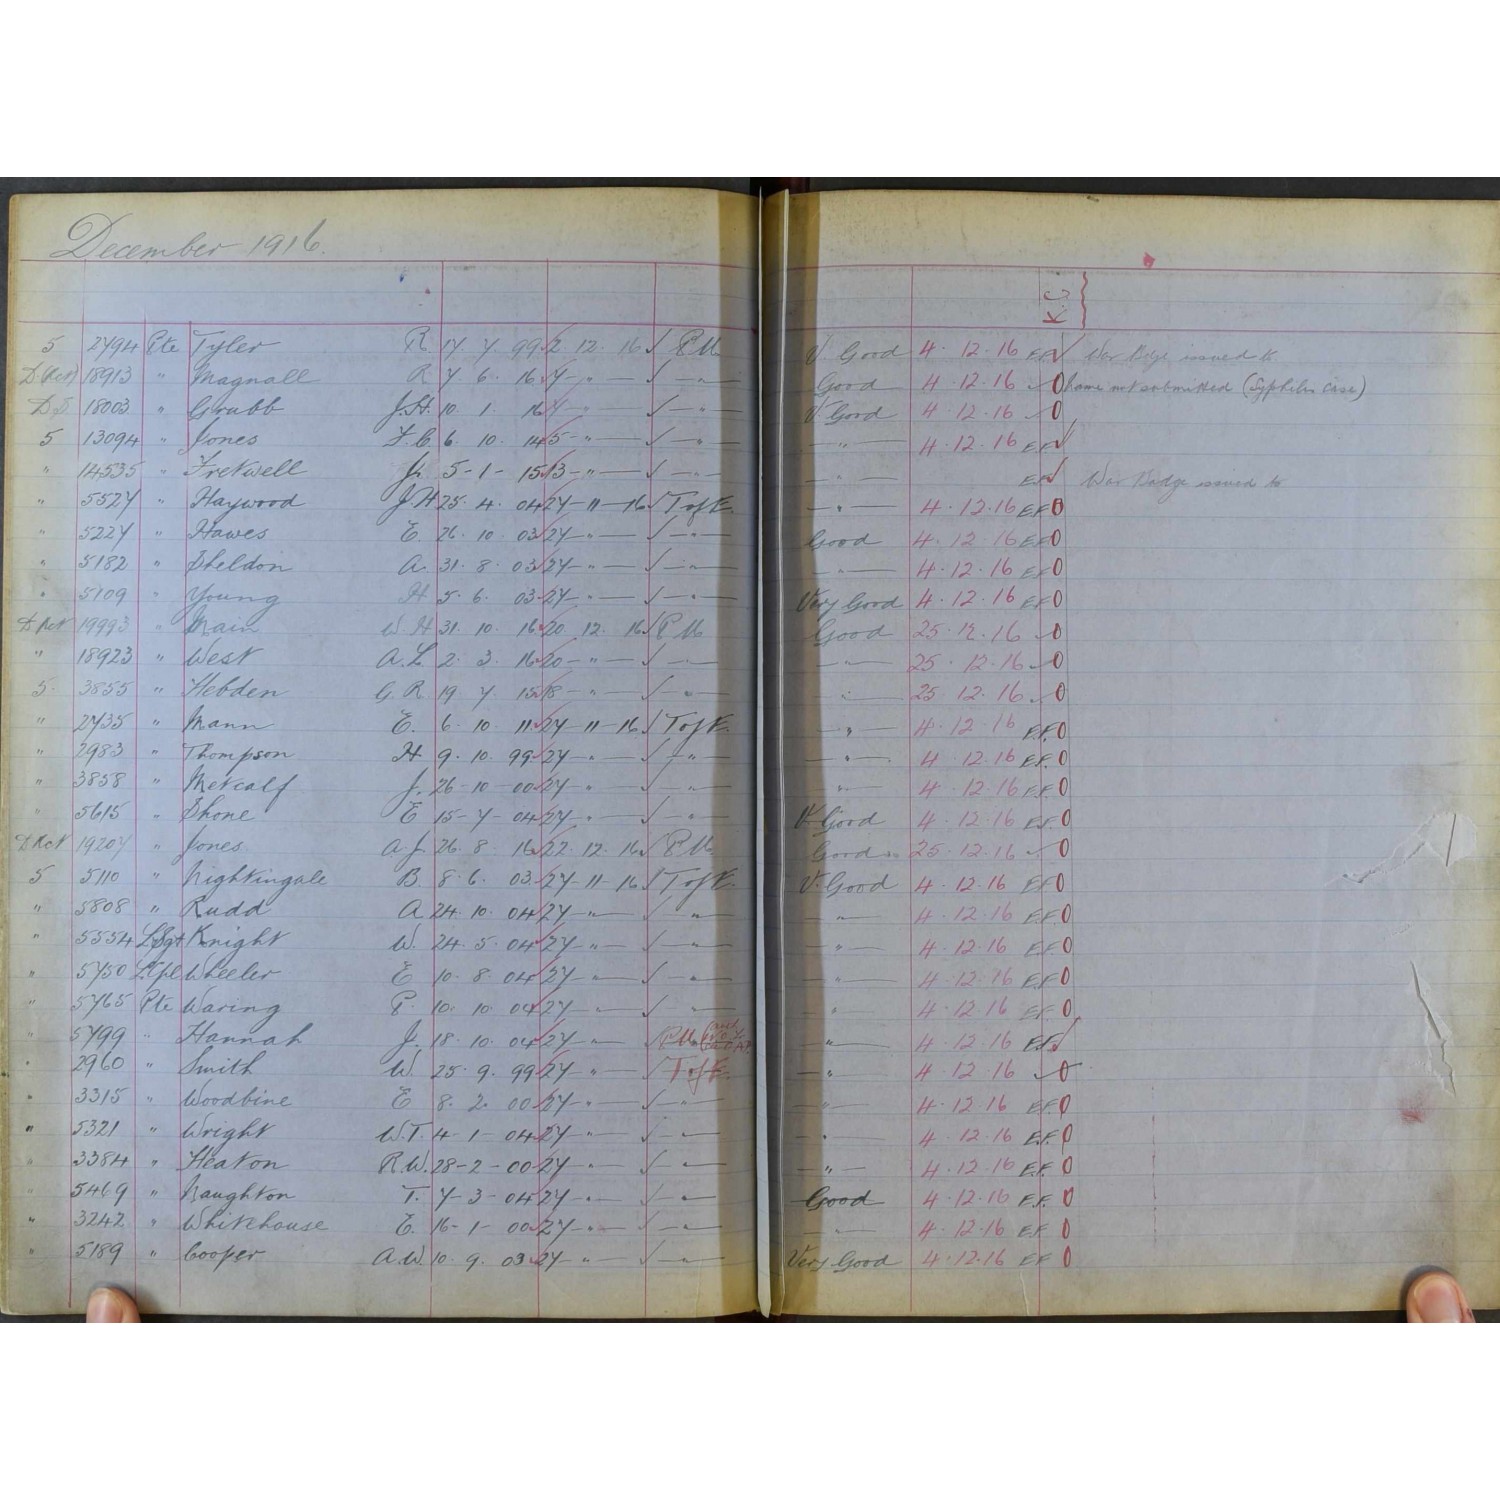 December 1916.
K.C.
5 2794 Pte Tyler R 17. 7. 99 2 12. 16 P.U. V. Good 4. 12. 16 E.F. War Badge issued to
D. Act 18913 " Magnall R 7. 6. 16 7 - " - - " - Good 4. 12. 16 0 name not submitted (Syphilis case)
18003 " Grubb J.H. 10. 1. 16 7 - " - - " - V Good 4. 12. 16 0
5 13094 " Jones F.C. 6. 10. 14 5 - " - - " - - " - 4. 12. 16 E.F.
" 14535 " Fretwell J. 5 - 1 - 15 13 - " - - " - - " - E.F. War Badge issued to
" 5527 " Haywood J.H 25. 4. 04 27 - 11 - 16 T of E. - " - 4. 12. 16 E.F. 0
" 5227 " Hawes E. 26. 10. 03 27 - " - - " - Good 4. 12. 16 E.F. 0
" 5182 " Sheldon A. 31. 8. 03 27 - " - - " - - " - 4. 12. 16 E.F. 0
" 5109 " Young H 5. 6. 03 27 - " - - " - Very Good 4. 12. 16 E.F. 0
D Act 19993 " Main W.H 31. 10. 16 20. 12. 16 P.U. Good 25. 12. 16 0
" 18923 " West A.L 2. 3. 16 20 - " - - " - - " - 25. 12. 16 0
5. 3855 " Hebden G.R. 19 7. 15 18 - " - - " - " 25 12. 16 0
" 2735 " Mann E. 6. 10. 11 27 - 11 - 16 T of E. - " - 4. 12. 16 E.F. 0
" 2983 " Thompson H. 9. 10. 99 27 - " - - " - - " - 4 12. 16 E.F. 0
" 3858 " Metcalf J. 26 - 10 - 00 27 - " - - " - " 4 12. 16 E.F. 0
" 5615 " Shone E 15 - 7 - 04 27 - " - - " - V. Good 4. 12. 16 E.F. 0
D Act 19207 " Jones. A.J. 26. 8. 16 22. 12. 16 P.U. Good 25. 12. 16 0
5 5110 " Nightingale B. 8. 6. 03 27 - 11 - 16 T of E. V. Good 4. 12. 16 E.F. 0
" 5808 " Rudd A 24. 10. 04 27 - " - - " - - " - 4. 12. 16 E.F. 0
" 5554 L/Sgt Knight W. 24. 5. 04 27 - " - - " - - " - 4. 12. 16 E.F. 0
" 5750 L.Cpl Wheeler E 10. 8. 04 27 - " - - " - - " - 4. 12. 16 E.F. 0
" 5765 Pte Waring P. 10. 10 04 27 - " - - " - " 4. 12. 16 E.F. 0
" 5799 " Hannah J. 18. 10. 04 27 - " - P.U. - " - 4. 12. 16 E.F.
" 2960 " Smith W. 25. 9. 99 27 - " - T of E. - " - 4. 12. 16 0
" 3315 " Woodbine E 8. 2. 00 27 - " - - " - - " - 4. 12 16 E.F. 0
" 5321 " Wright W.T. 4 - 1 - 04 27 - " - - " - - " - 4. 12. 16 E.F. 0
" 3384 " Heaton R.W. 28 - 2 - 00 27 - " - - " - - " - 4. 12. 16 E.F. 0
" 5469 " Naughton T. 7 - 3 - 04 27 - " - - " - Good 4. 12. 16 E.F. 0
" 3242 " Whitehouse E. 16 - 1 - 00 27 - " - - " - - " - 4. 12. 16 E.F. 0
" 5189 " Cooper A.W. 10. 9. 03 27 - " - - " - Very Good 4. 12. 16 E.F. 0